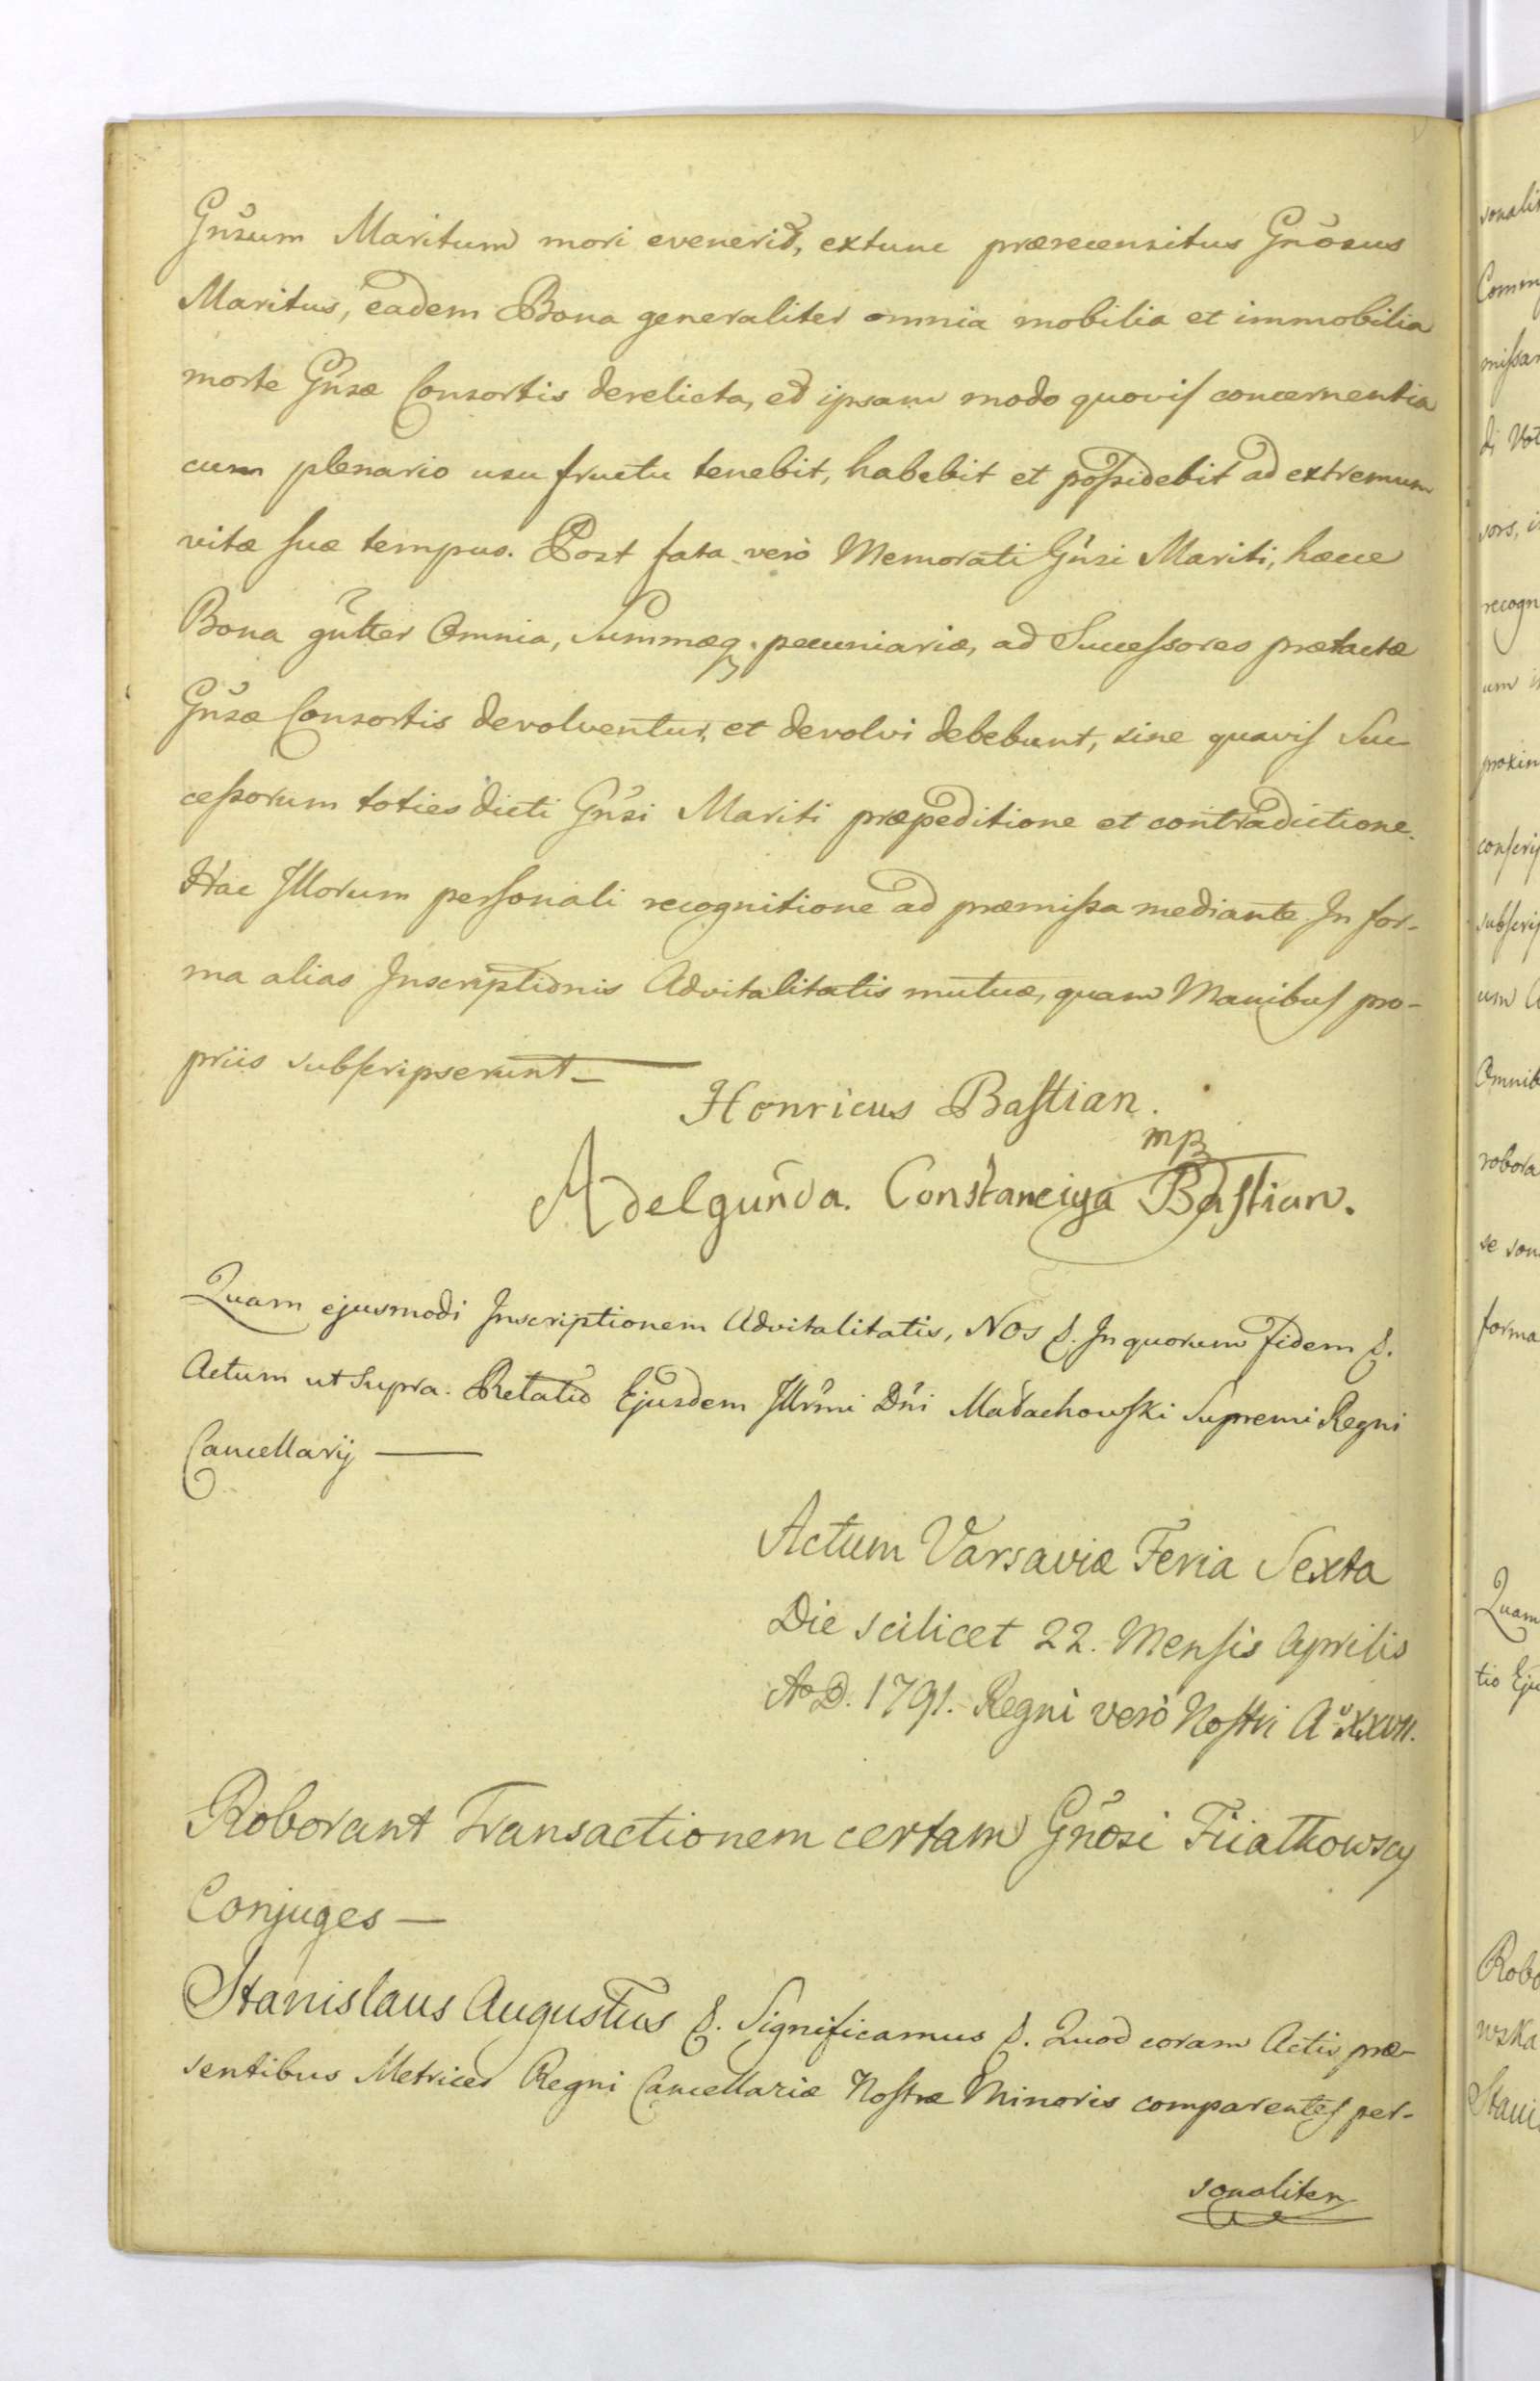 Gnsum Maritum mori evenerit, extunc prærecensitus Gnosus
Maritus, eadem Bona generaliter omnia mobilia et immobilia
morte Gnsæ Consortis derelicta, et ipsam modo quovis concernentia
cum plenario usufructu tenebit, habebit et possidebit ad extremum
vitæ suæ tempus. Post fata verò Memorati Gnsi Mariti, hæcce
Bona gnlter Omnia, Summæq. pecuniariæ, ad Successores prætactæ
Gnsæ Consortis devolventur, et devolvi debebunt, sine quavis Suc-
cessorum toties dicti Gnsi Mariti præpeditione et contradictione.
Hac Illorum personali recognitione ad præmissa mediante. In for-
ma alias Inscriptionis Advitalitatis mutuæ, quam Manibus pro-
priis subscripserunt—
Henricus Bastian.
mp
Adelgunda. Constanciya Bastian.
Quam ejusmodi Inscriptionem Advitalitatis, Nos &. In quorum Fidem &.
Actum ut Supra. Relatio Ejusdem Illrmi Dni Małachowski Supremi Regni
Cancellarij —
Actum Varsaviæ Feria Sexta
Die scilicet 22. Mensis Aprilis
Ao D. 1791. Regni verò Nostri Ao XXVII.
Roborant Transactionem certam Gnosi Fiiatkowscy
Conjuges —
Stanislaus Augustus &. Significamus &. Quod coram Actis præ-
sentibus Metrices Regni Cancellariæ Nostræ Minoris comparentes per-
sonaliter